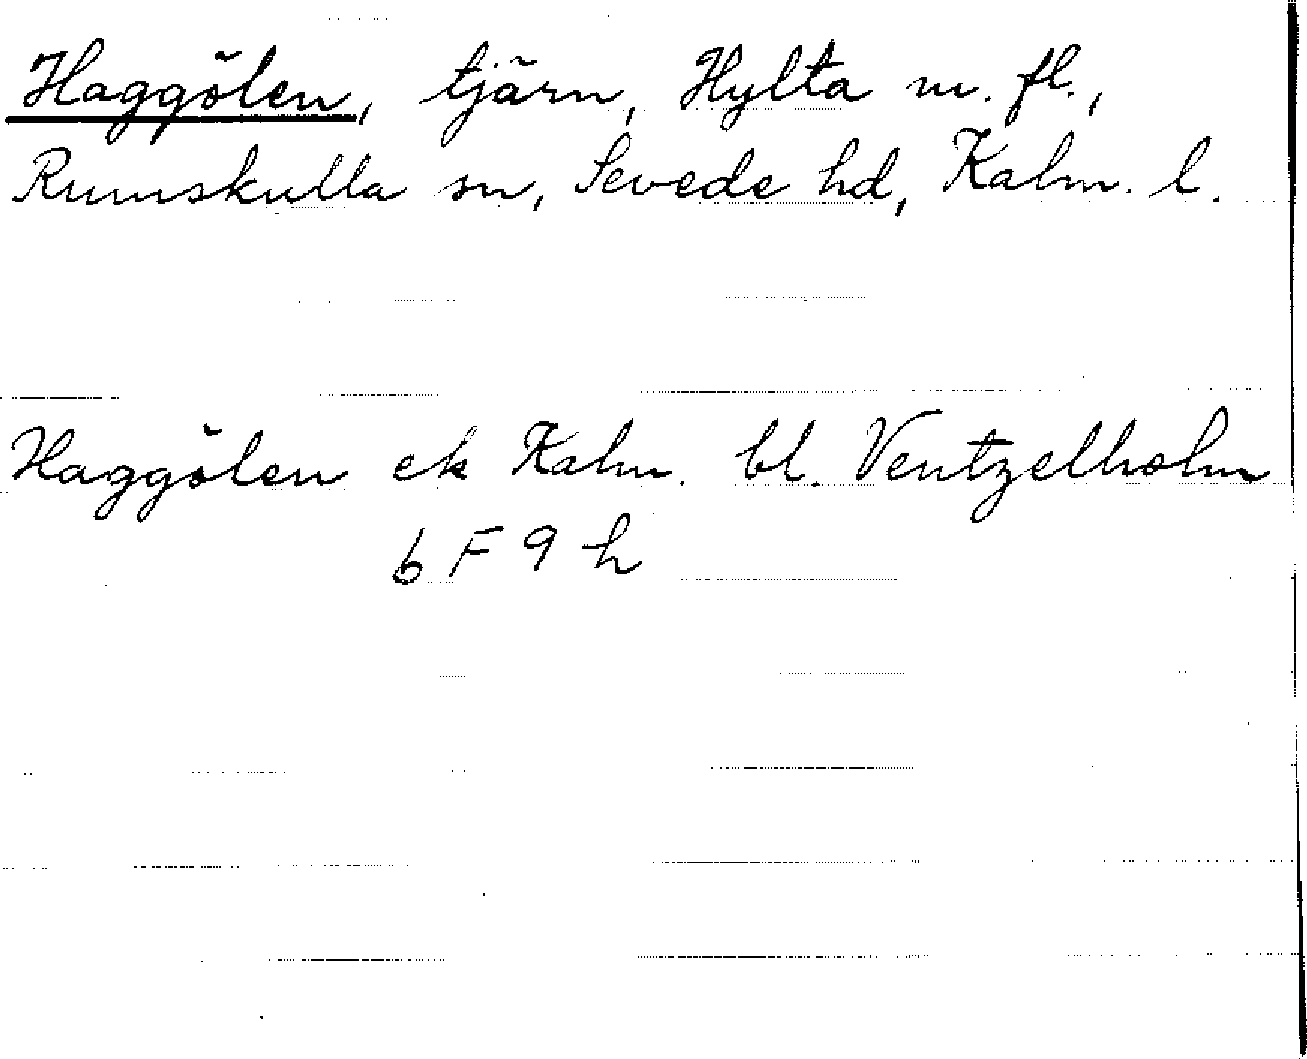 Haggölen, tjärn, Hylta m. fl.,
Rumskulla sn, Sevede hd, Kalm. l.
Haggölen ek Kalm. bl. Ventzelholm
6 F 9 h